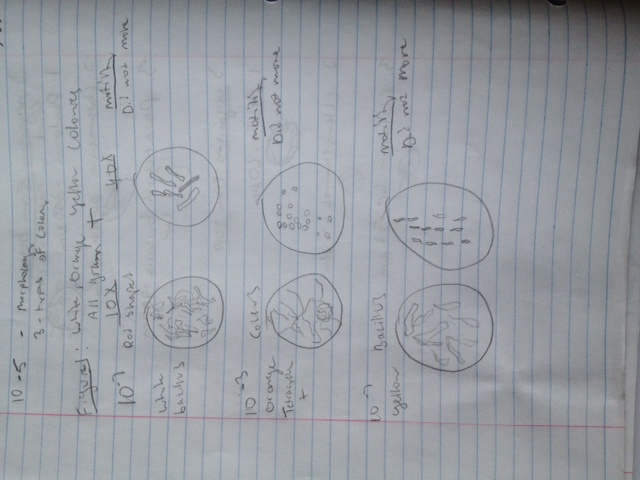 10-5 - Morphology
3 types of colony
Figure 1: white, orange, yellow colonies
All gram +
10X 40X motility
10⁻⁷ Rod shaped Did not move
white
bacillus
10⁻³ Cocci motility
orange Did not move
Tetracycline
+
10⁻⁷ Bacillus motility
yellow Did not move